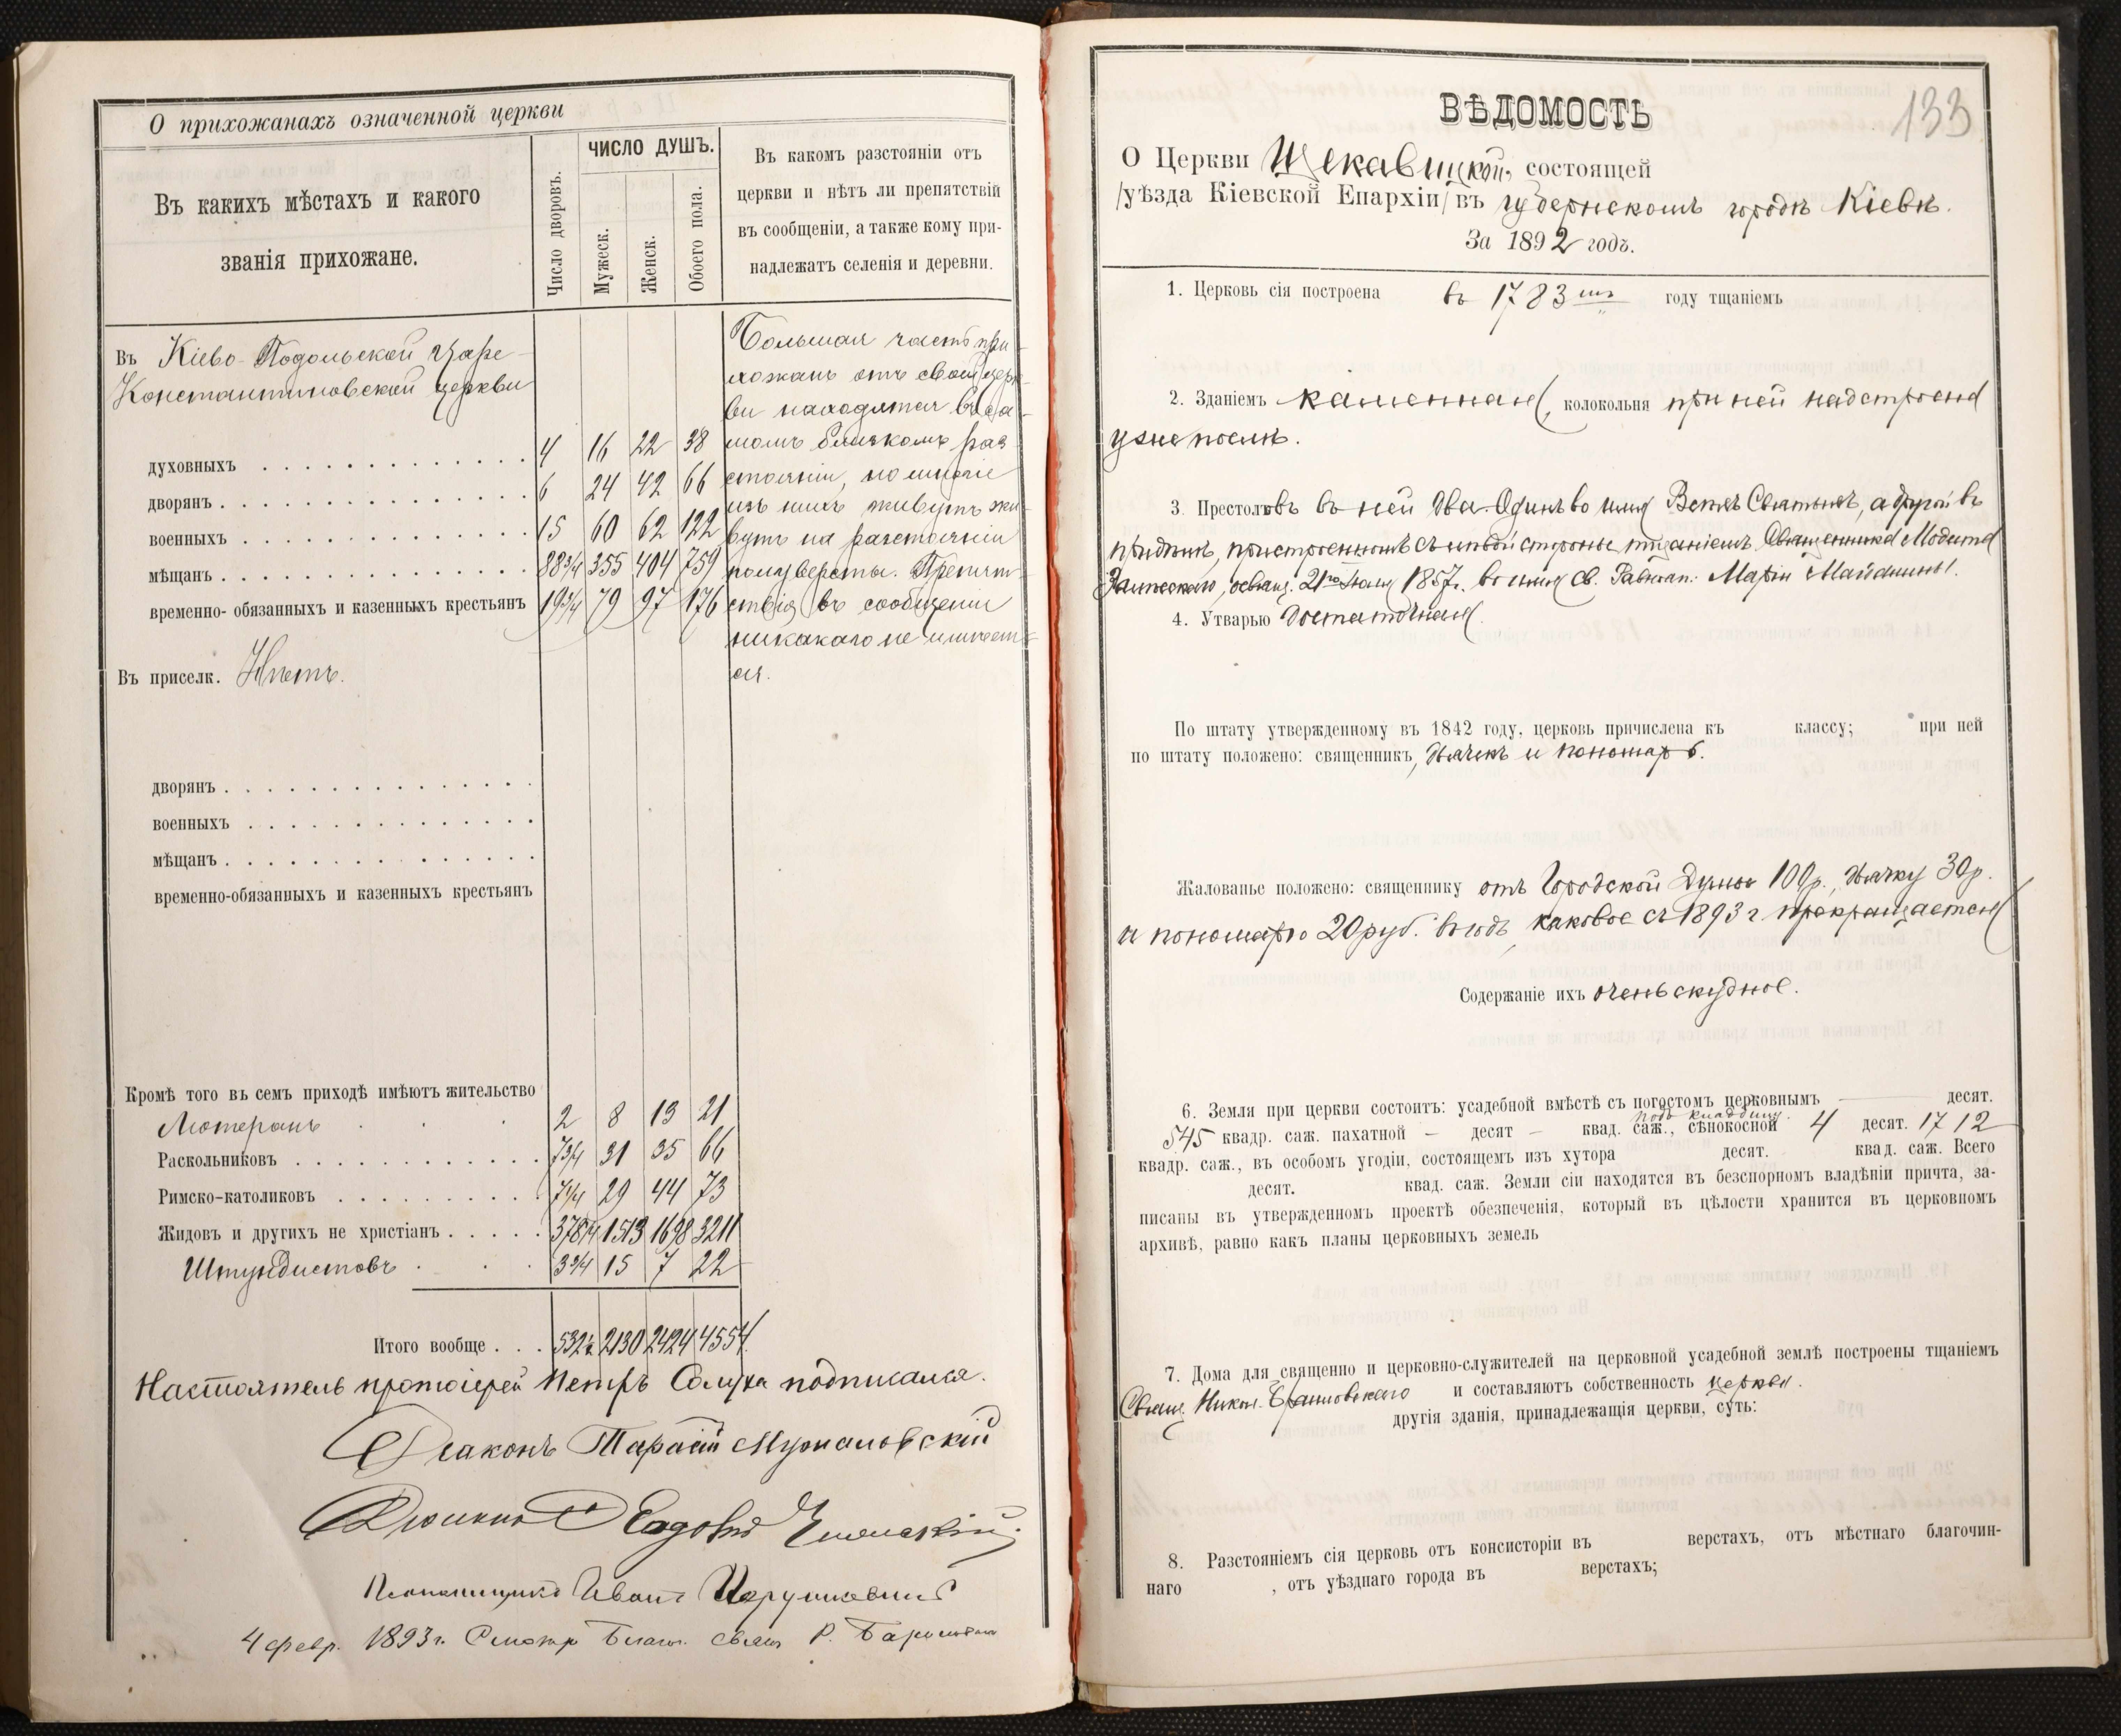 О прихожанахъ означенной церкви
Въ какихъ мѣстахъ и какого
званія прихожане.
Число дворовъ.
ЧИСЛО ДУШЪ.
Мужеск.
Женск.
Обоего пола.
Въ какомъ разстояніи отъ
церкви и нѣтъ ли препятствій
въ сообщеніи, а также кому при-
надлежатъ селенія и деревни.
Въ Кіево-Подольской Царе-
Константиновской церкви
духовныхъ 4 16 22 38
дворянъ 6 24 42 66
военныхъ 15 60 62 122
мѣщанъ 88 3/4 355 404 759
временно-обязанныхъ и казенныхъ крестьянъ 19 3/4 79 97 176
Большая часть при-
хожанъ отъ своей цер-
кви находятся въ са-
момъ близкомъ раз-
стояніи, но многіе
изъ нихъ живутъ жи-
вутъ на разстояніи
полуверсты. Препят-
ствія въ сообщеніи
никакого не имѣет-
ся.
Въ приселк. Нѣтъ.
дворянъ
военныхъ
мѣщанъ
временно-обязанныхъ и казенныхъ крестьянъ
Кромѣ того въ семъ приходѣ имѣютъ жительство
Лютеранъ 2 8 13 21
Раскольниковъ 7 3/4 31 35 66
Римско-католиковъ 7 1/4 29 44 73
Жидовъ и другихъ не христіанъ 378 1/4 1513 1698 3211
Штундистовъ 3 3/4 15 7 22
Итого вообще 532 1/2 2130 2424 4554
Настоятель протоіерей Петръ Солуха подписался.
Діаконъ Тарасій
4 февр. 1893 г.
133
ВѢДОМОСТЬ
О Церкви Щекавицкой, состоящей
/уѣзда Кіевской Епархіи/ въ губернскомъ городѣ Кіевѣ.
За 1892 годъ.
1. Церковь сія построена въ 1783 мъ году тщаніемъ
2. Зданіемъ каменная, колокольня при ней надстроена
уже послѣ.
3. Престоловъ въ ней два. Одинъ во имя Всѣхъ Святыхъ, а другой въ
придѣлѣ, пристроенномъ съ лѣвой стороны тщаніемъ Священника
освящ. 21го Іюля 1857 г. во имя св. Равноап. Маріи Магдалины.
4. Утварью достаточная.
По штату утвержденному въ 1842 году, церковь причислена къ классу; при ней
по штату положено: священникъ, дьячекъ и пономарь.
Жалованье положено: священнику отъ Городской Думы 100 р., дьячку 30 р.
и пономарю 20 руб. въ годъ, каковое съ 1893 г прекращается
Содержаніе ихъ очень скудное.
6. Земля при церкви состоитъ: усадебной вмѣстѣ съ погостомъ церковнымъ — десят.
подъ кладбищ.
545 квадр. саж. пахатной — десят — квад. саж., сѣнокосной 4 десят. 1712
квадр. саж., въ особомъ угодіи, состоящемъ изъ хутора десят. квад. саж. Всего
десят. квад. саж. Земли сіи находятся въ безспорномъ владѣніи причта, за-
писаны въ утвержденномъ проектѣ обезпеченія, который въ цѣлости хранится въ церковномъ
архивѣ, равно какъ планы церковныхъ земель
7. Дома для священно и церковно-служителей на церковной усадебной землѣ построены тщаніемъ
Свящ. Никол. и составляютъ собственность церкви.
другія зданія, принадлежащія церкви, суть:
8. Разстояніемъ сія церковь отъ консисторіи въ верстахъ, отъ мѣстнаго благочин-
наго , отъ уѣзднаго города въ верстахъ;